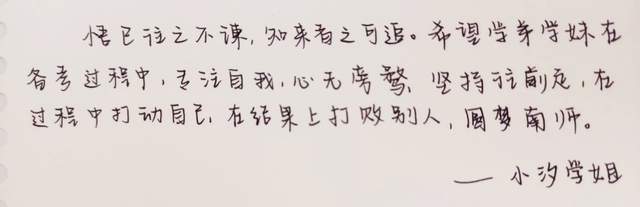 悟已往之不谏,知来者之可追。希望学弟学妹在
备考过程中,专注自我,心无旁骛,坚持往前走,在
过程中打动自己,在结果上打败别人,圆梦南师。
——小汐学姐